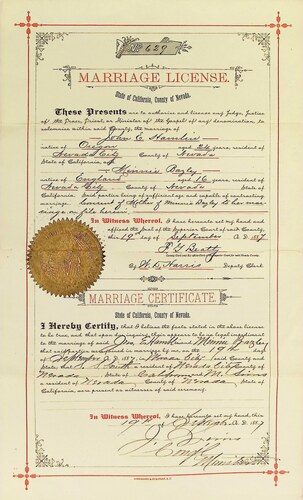 No 629
MARRIAGE LICENSE.
State of California, County of Nevada.
These Presents are to authorize and license any Judge, Justice
of the Peace, Priest, or Minister of the Gospel of any denomination, to
solemnize within said County, the marriage of
John E Hamlin
native of Oregon aged 24 years, resident of
Nevada City County of Nevada
State of California, and
Minnie Bagley
native of England aged 16 years, resident of
Nevada City County of Nevada State of
California. Said parties being of sufficient age and capable of contracting
marriage. Consent of Mother of Minnie Bagley to his mar
riage on file herein.
In Witness Whereof, I have hereunto set my hand and
affixed the Seal of the Superior Court of said County,
this 19th day of September A.D. 1887
F G Beatty
By W D Harris Deputy Clerk.
MARRIAGE CERTIFICATE
State of California, County of Nevada.
I Hereby Certify, that I believe the facts stated in the above license
to be true, and that upon due inquiry, there appears to be no legal impediment
to the marriage of said Jno. E. Hamlin and Minnie Bagley
that said parties were joined in marriage by me, on the 19th day
of September A.D. 1887, in Nevada City said County and
State; that
a resident of Nevada City County of
Nevada State of California and
a resident of Nevada County of Nevada State of
California, were present as witnesses of said ceremony.
In Witness Whereof, I have hereunto set my hand, this
19th A.D. 1887
J. Sims